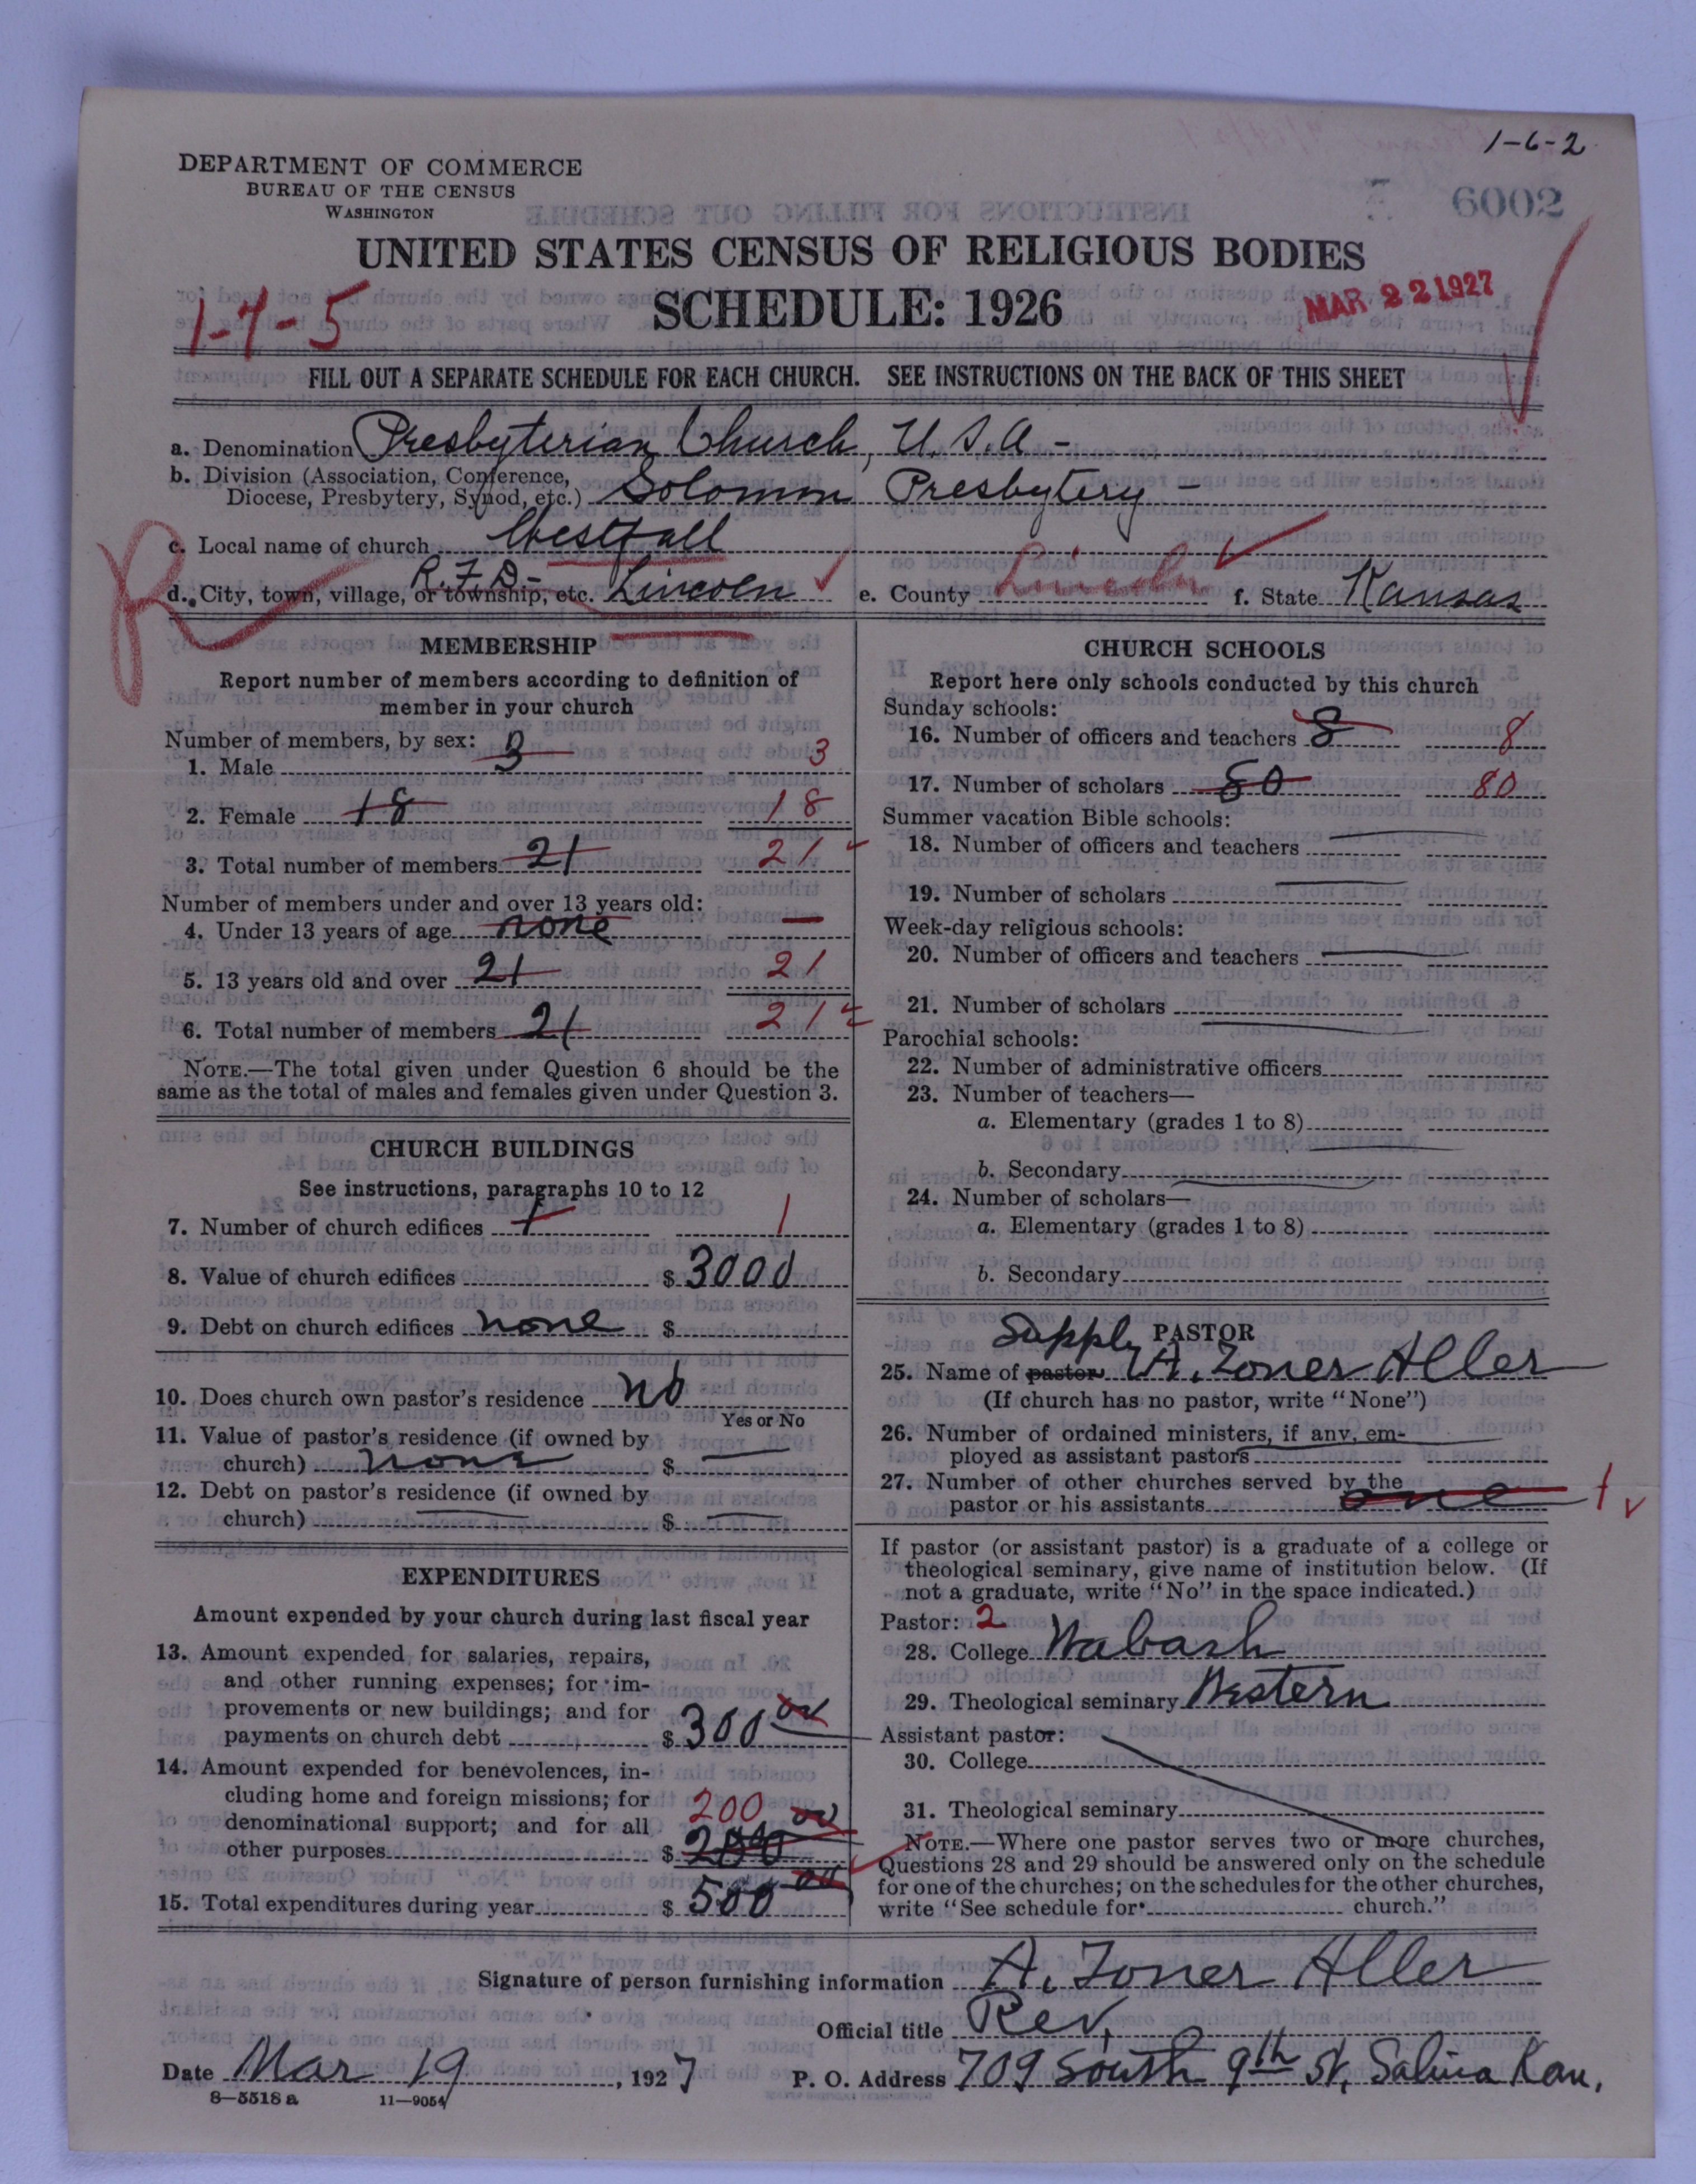 1-6-2
DEPARTMENT OF COMMERCE
BUREAU OF THE CENSUS
WASHINGTON
6002
UNITED STATES CENSUS OF RELIGIOUS BODIES
SCHEDULE: 1926
1-7-5
MAR 22 1927
FILL OUT A SEPARATE SCHEDULE FOR EACH CHURCH. SEE INSTRUCTIONS ON THE BACK OF THIS SHEET
a. Denomination Presbyterian Church, U.S.A-
b. Division (Association, Conference,
Diocese, Presbytery, Synod, etc.) Solomon Presbytery-
c. Local name of church Westfall
R.F.D-
d. City, town, village, or township, etc. Lincoln e. County Lincoln f. State Kansas
R
MEMBERSHIP
Report number of members according to definition of
member in your church
Number of members, by sex:
1. Male 3 3
2. Female 18 18
3. Total number of members 21 21
Number of members under and over 13 years old:
4. Under 13 years of age none —
5. 13 years old and over 21 21
6. Total number of members 21 21
NOTE.—The total given under Question 6 should be the
same as the total of males and females given under Question 3.
CHURCH BUILDINGS
See instructions, paragraphs 10 to 12
7. Number of church edifices 1 1
8. Value of church edifices $ 3000
9. Debt on church edifices none $
10. Does church own pastor's residence no
Yes or No
11. Value of pastor's residence (if owned by
church) none $ —
12. Debt on pastor's residence (if owned by
church) — $ —
EXPENDITURES
Amount expended by your church during last fiscal year
13. Amount expended for salaries, repairs,
and other running expenses; for im-
provements or new buildings; and for
payments on church debt $ 300 00
14. Amount expended for benevolences, in-
cluding home and foreign missions; for
denominational support; and for all 200 00
other purposes $ 200
15. Total expenditures during year $ 500 00
CHURCH SCHOOLS
Report here only schools conducted by this church
Sunday schools:
16. Number of officers and teachers 8 8
17. Number of scholars 80 80
Summer vacation Bible schools:
18. Number of officers and teachers —
19. Number of scholars —
Week-day religious schools:
20. Number of officers and teachers —
21. Number of scholars —
Parochial schools:
22. Number of administrative officers
23. Number of teachers—
a. Elementary (grades 1 to 8)
b. Secondary
24. Number of scholars—
a. Elementary (grades 1 to 8)
b. Secondary
Supply PASTOR
25. Name of pastor A. Zoner Aller
(If church has no pastor, write "None")
26. Number of ordained ministers, if any, em-
ployed as assistant pastors
27. Number of other churches served by the
pastor or his assistants one 1
If pastor (or assistant pastor) is a graduate of a college or
theological seminary, give name of institution below. (If
not a graduate, write "No" in the space indicated.)
Pastor: 2
28. College Wabash
29. Theological seminary Western
Assistant pastor:
30. College
31. Theological seminary
NOTE.—Where one pastor serves two or more churches,
Questions 28 and 29 should be answered only on the schedule
for one of the churches; on the schedules for the other churches,
write "See schedule for church."
Signature of person furnishing information A. Zoner Aller
Official title Rev.
Date Mar 19, 1927 P. O. Address 709 South 9th St, Salina Kan.
8—5518 a 11—9054